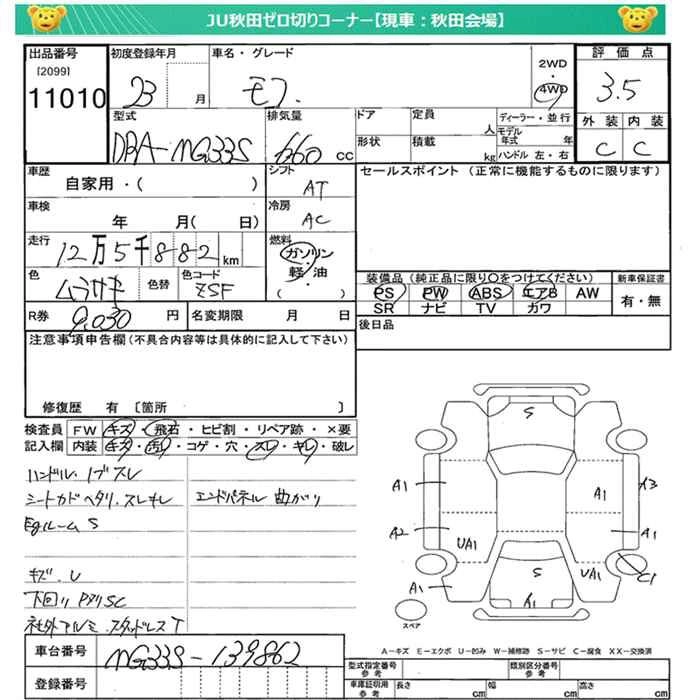 JU秋田ゼロ切りコーナー【現車：秋田会場】
出品番号
[2099]
11010
初度登録年月
23 月
車名・グレード
モコ
2WD
4WD
評価点
3.5
外装 内装
C C
型式
DBA-MG33S
排気量
660 cc
ドア
定員
人
形状
積載
kg
ディーラー・並行
モデル年式 年
ハンドル 左・右
車歴
自家用・( )
シフト
AT
セールスポイント (正常に機能するものに限ります)
車検
年 月( 日)
冷房
AC
走行
12万5千882km
燃料
ガソリン
軽・油
( )
色
ムラサキ
色替
色コード
ZSF
装備品 (純正品に限り○をつけてください)
PS PW ABS エアB AW
SR ナビ TV カワ
新車保証書
有・無
R券
9,030円
名変期限 月 日
後日品
注意事項申告欄 (不具合内容等は具体的に記入して下さい)
修復歴 有 [箇所 ]
検査員
記入欄
FW キズ・飛石・ヒビ割・リペア跡・×要
内装 キズ・汚れ・コゲ・穴・スレ・キレ・破レ
ハンドル・ノブスレ
シートカドヘタリ・スレキレ
エンドパネル曲がり
Egルーム S
キズ・U
下回りサビSC
社外アルミ・スタッドレスT
車台番号
MG33S-139862
登録番号
S
A1
A1
A3
A2
A1
UA1
S
UA1
C1
A1
スペア
A-キズ E-エクボ U-凹み W-補修跡 S-サビ C-腐食 XX-交換済
型式指定番号
参考
類別区分番号
参考
車庫証明用
参考
長さ cm
幅 cm
高さ cm